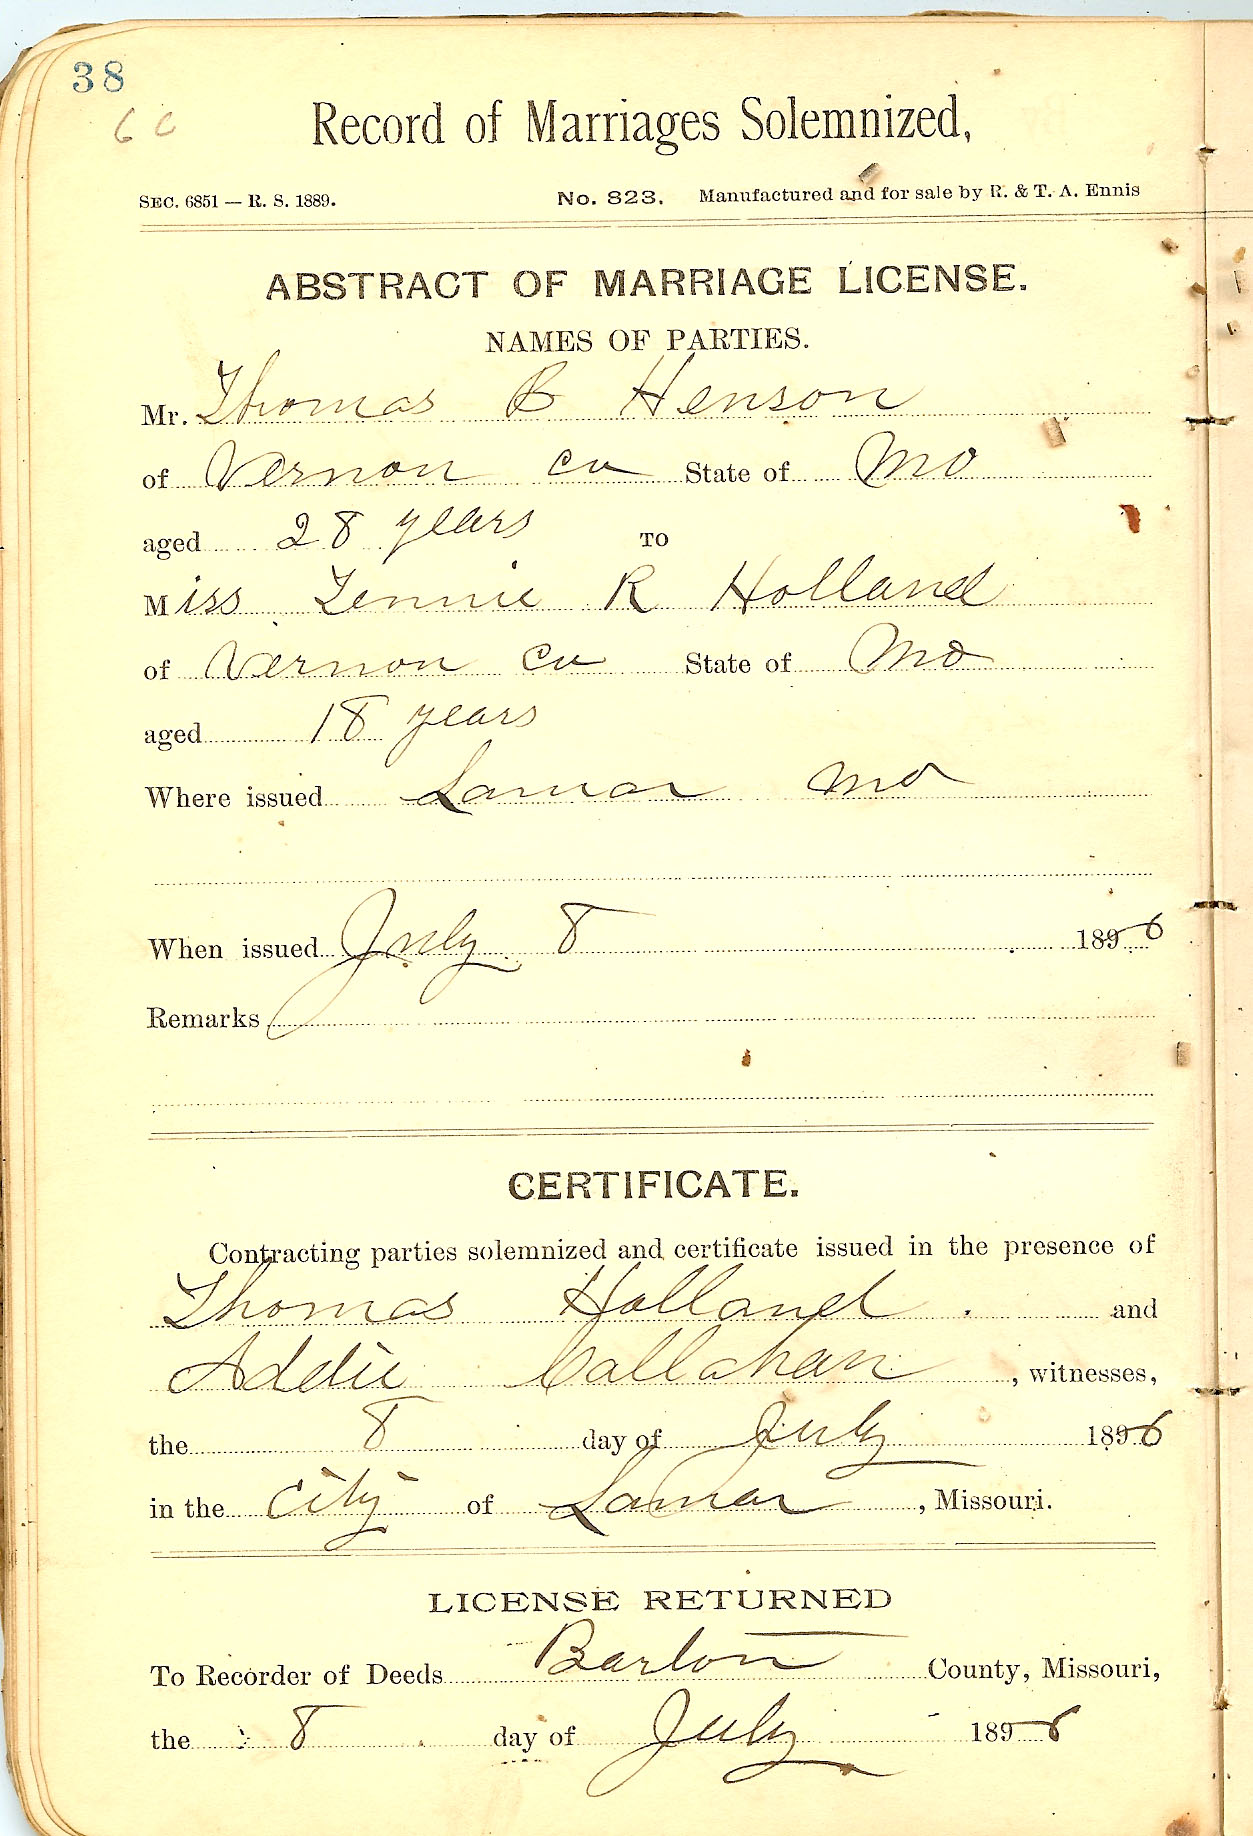 38
6 c
Record of Marriages Solemnized,
SEC. 6851 — R. S. 1889. No. 823. Manufactured and for sale by R. & T. A. Ennis
ABSTRACT OF MARRIAGE LICENSE.
NAMES OF PARTIES.
Mr. Thomas B Henson
of Vernon Co State of Mo
aged 28 years TO
Miss Tennie R Holland
of Vernon Co State of Mo
aged 18 years
Where issued Lamar Mo
When issued July 8 1896
Remarks
CERTIFICATE.
Contracting parties solemnized and certificate issued in the presence of
Thomas Holland and
Addie Callahan, witnesses,
the 8 day of July 1896
in the City of Lamar, Missouri.
LICENSE RETURNED
To Recorder of Deeds Barton County, Missouri,
the 8 day of July 1896